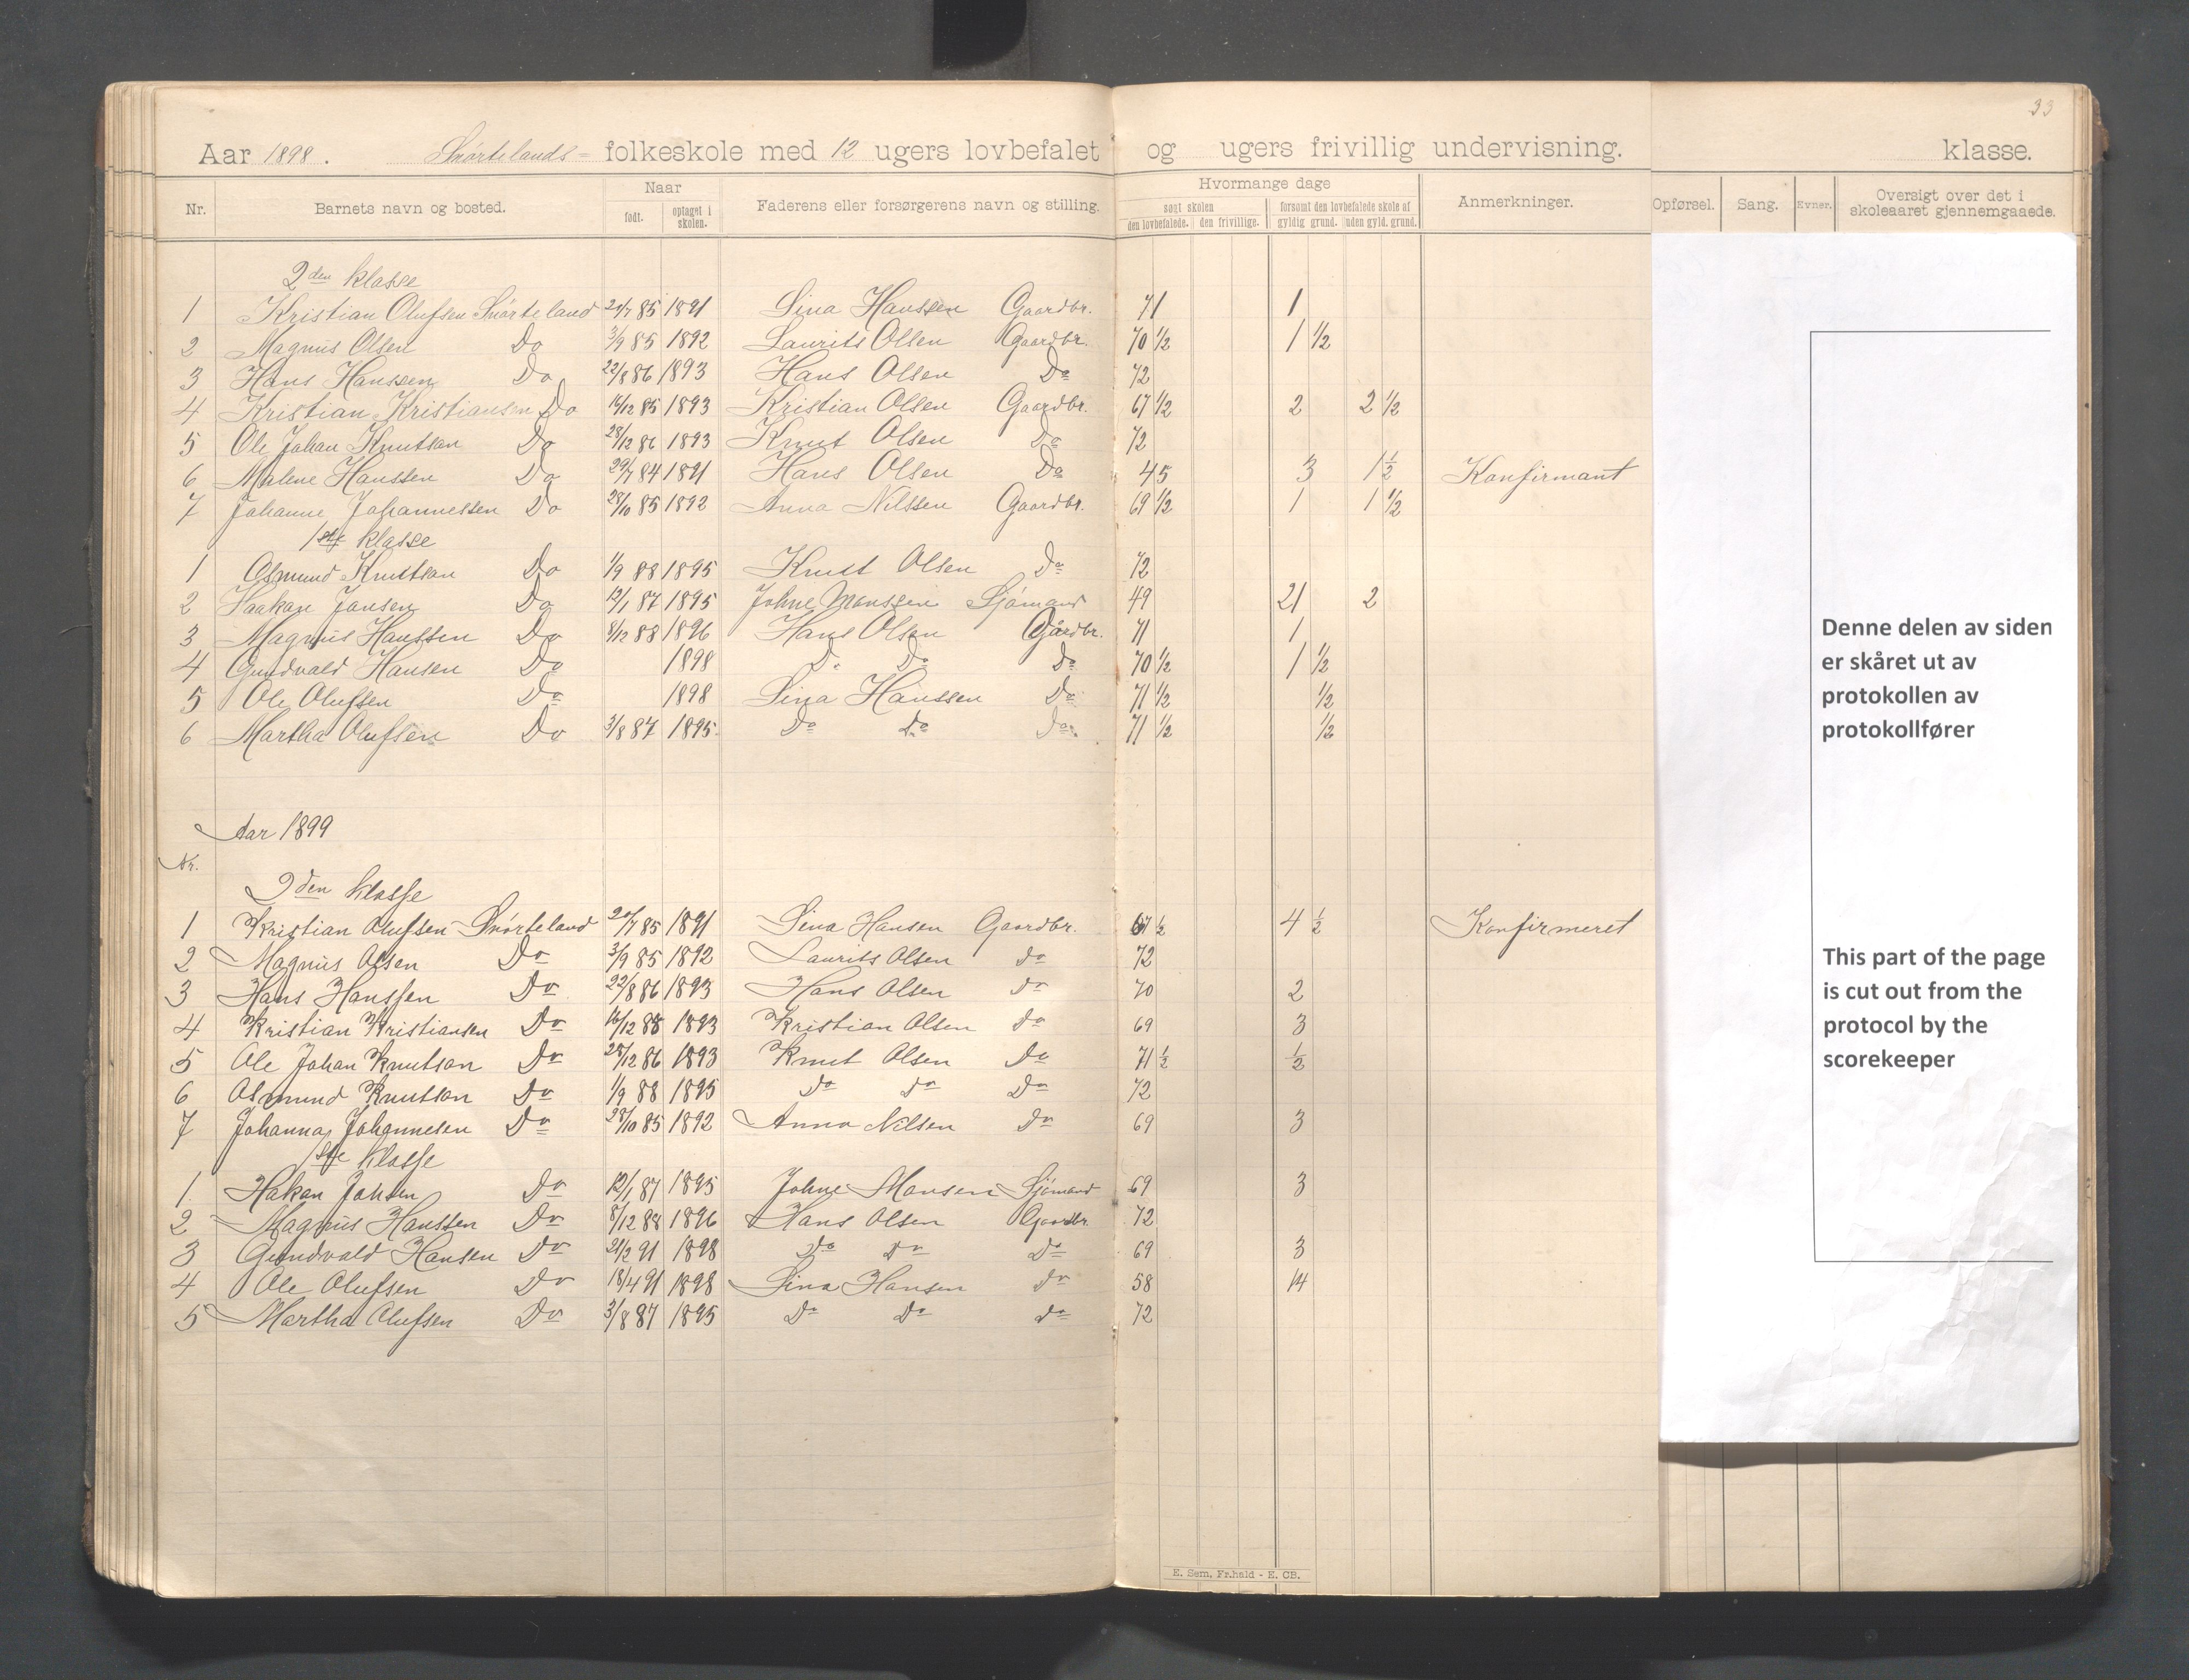 33
Aar 1898. Snørtelands- folkeskole med 12 ugers lovbefalet og ugers frivillig undervisning. klasse.
Nr. Barnets navn og bosted. Naar født. optaget i skolen. Faderens eller forsørgerens navn og stilling. Hvormange dage søgt skolen den lovbefalede. den frivillige. forsømt den lovbefalede skole af gyldig grund. uden gyld. grund. Anmerkninger. Opførsel. Sang. Evner. Oversigt over det i skoleaaret gjennemgaaede.
2den klasse
1 Kristian Olufsen Snørteland 20/7 85 1891 Sina Hanssen Gaardbr. 71 1
2 Magnus Olsen Do 3/9 85 1892 Laurits Olsen Gaardbr. 70 1/2 1 1/2
3 Hans Hanssen Do 22/8 86 1893 Hans Olsen Do 72
4 Kristian Kristiansen Do 16/12 85 1893 Kristian Olsen Gaardbr. 67 1/2 2 2 1/2
5 Ole Johan Knutsan Do 28/12 86 1893 Knut Olsen Do 72
6 Malene Hanssen Do 29/7 84 1891 Hans Olsen Do 45 3 1 1/2 Konfirmant
7 Johanne Johannessen Do 28/10 85 1892 Anna Nilssen Gaardbr. 69 1/2 1 1 1/2
1ste klasse
1 Osmund Knutsan Do 1/9 88 1895 Knut Olsen Do 72
2 Haakan Jansen Do 12/1 87 1895 Johne Monssen Sjømand 49 21 2
3 Magnus Hanssen Do 8/12 88 1896 Hans Olsen Gårdbr. 71 1
4 Gundvald Hansen Do 1898 Do Do Do 70 1/2 1 1/2
5 Ole Olufsen Do 1898 Sina Hanssen Do 71 1/2 1/2
6 Martha Olufsen Do 3/8 87 1895 Do Do Do 71 1/2 1/2
Aar 1899
Nr.
2den klasse
1 Kristian Olufsen Snørteland 20/7 85 1891 Sina Hansen Gaardbr. 67 1/2 4 1/2 Konfirmeret
2 Magnus Olsen Do 3/9 85 1892 Laurits Olsen do 72
3 Hans Hanssen Do 22/8 86 1893 Hans Olsen do 70 2
4 Kristian Kristiansen Do 16/12 85 1893 Kristian Olsen do 69 3
5 Ole Johan Knutsan Do 28/12 86 1893 Knut Olsen do 71 1/2 1/2
6 Osmund Knutsan Do 1/9 88 1895 do do Do 72
7 Johanna Johannesen Do 28/10 85 1892 Anna Nilsen do 69 3
1ste klasse
1 Hakan Johsen Do 12/1 87 1895 Johne Monsen Sjømand 69 3
2 Magnus Hanssen Do 8/12 88 1896 Hans Olsen Gaardbr. 72
3 Gundvald Hansen Do 21/2 91 1898 Do Do Do 69 3
4 Ole Olufsen Do 18/4 91 1898 Sina Hansen do 58 14
5 Martha Olufsen Do 3/8 87 1895 Do Do do 72
E. Sem, Fr.hald - E. CB.
Denne delen av siden
er skåret ut av
protokollen av
protokollfører
This part of the page
is cut out from the
protocol by the
scorekeeper